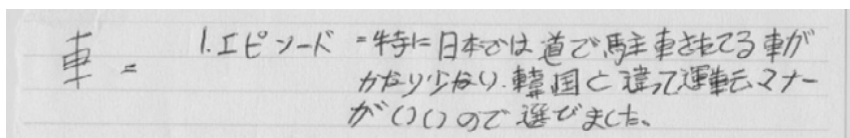 車 = 1.エピソード = 特に日本では道で駐車されてる車が
かなり少なり.韓国と違って運転マナー
がいいので選びました。